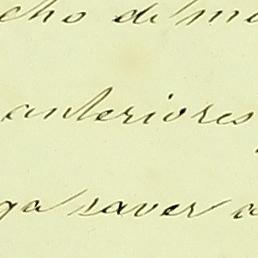 cho de m
anteriores
ga saver a